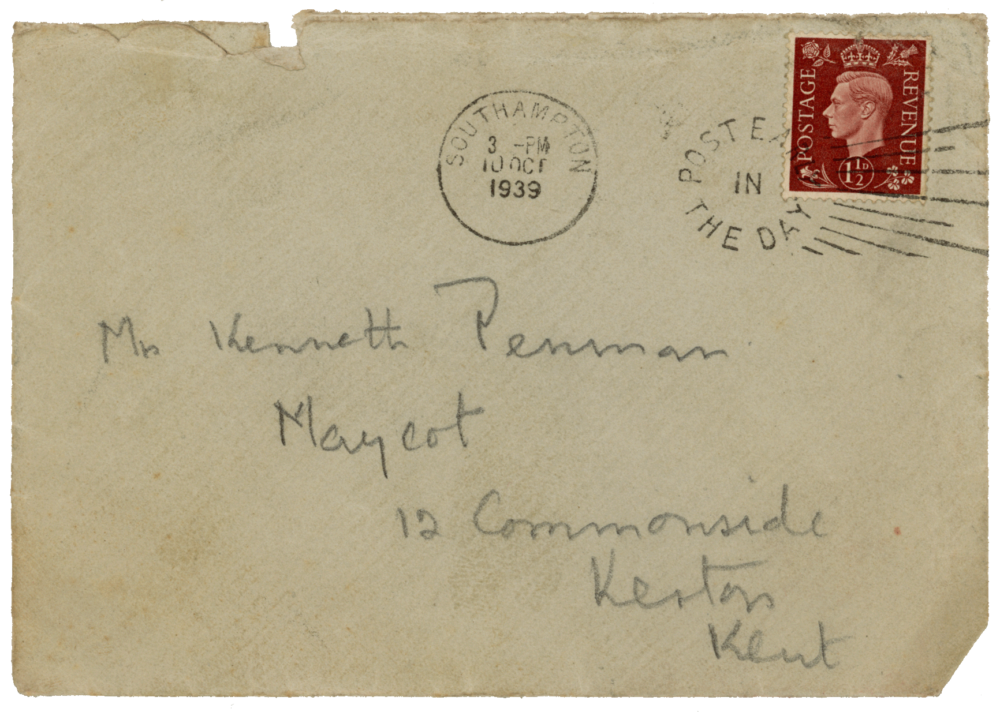 SOUTHAMPTON
3 - PM
10 OCT
1939
POST EA
IN
THE DAY
POSTAGE
REVENUE
1½D
Mr Kenneth Penman
Maycot
12 Commonside
Keston
Kent